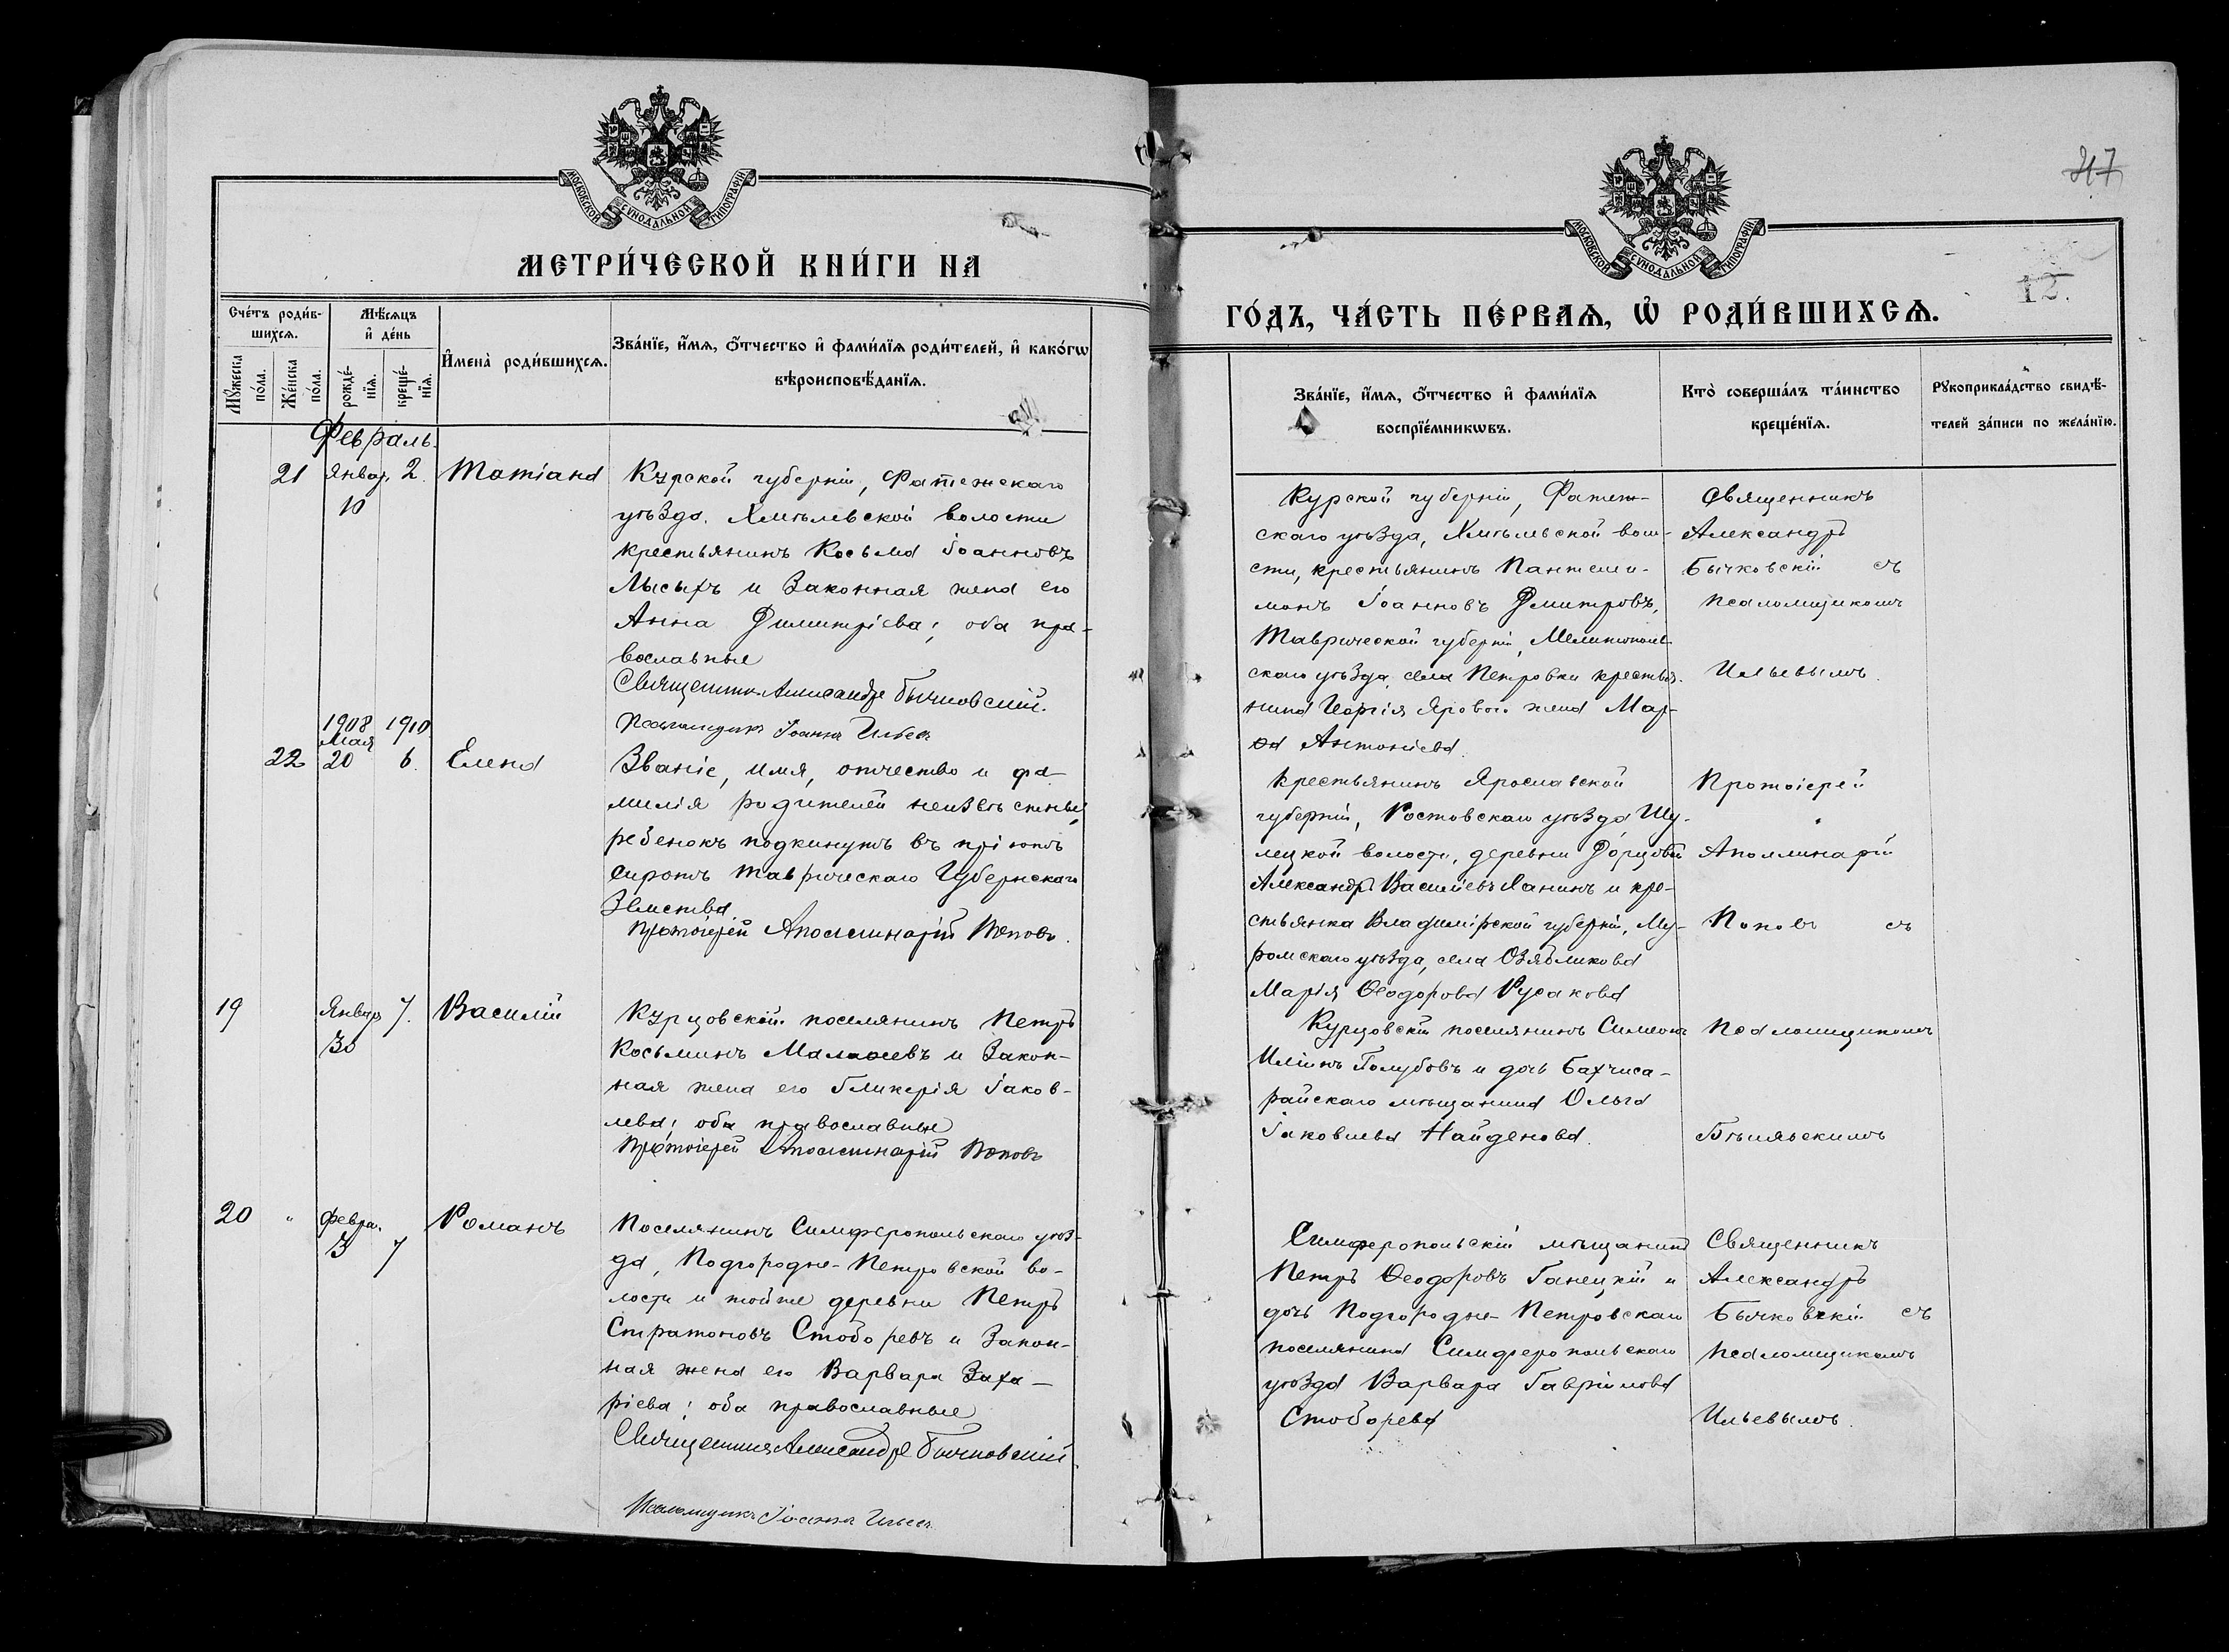 МОСКОВСКОЙ СѴНОДАЛЬНОЙ ТИПОГРАФІИ
МЕТРИ́ЧЕСКОЙ КНИ́ГИ НА
Сче́тъ роди́в-
шихсѧ.
Мѣ́сѧцъ
и҆ де́нь
Мꙋ́жеска
по́ла.
Же́нска
по́ла.
рожде́-
нїѧ.
креще́-
нїѧ.
И҆мена̀ роди́вшихсѧ.
Зва́нїе, и҆́мѧ, ѻ҆́тчество и҆ фами́лїѧ роди́телей, и҆ како́гѡ
вѣроисповѣ́данїѧ.
Февраль.
21 Январ. 2. Татіана
10
Курской губерніи, Фатежскаго
уѣзда, Хмѣлевской волости
крестьянинъ Косьма Іоанновъ
Лысыхъ и законная жена его
Анна Димитріева; оба пра-
вославные
Священникъ Александръ Бычковскій.
Псаломщикъ Іоаннъ Ильевъ
1908 1910
Мая
22 20 6. Елена
Званіе, имя, отчество и фа-
милія родителей неизвѣстны,
ребенокъ подкинутъ въ пріютъ
сиротъ Таврическаго Губернскаго
Земства.
Протоіерей Аполлинарій Поповъ.
19 Январ 7. Василій
30
Курцовской поселянинъ Петръ
Косьминъ и закон-
ная жена его Гликерія Іаков-
лева; оба православные
Протоіерей Аполлинарій Поповъ
20 " Февра. Романъ
3 7
Поселянинъ Симферопольскаго уѣз-
да, Подгородне-Петровской во-
лости и тойже деревни Петръ
Стратоновъ Стоборевъ и закон-
ная жена его Варвара Заха-
ріева; оба православные
Священникъ Александръ Бычковскій.
Псаломщикъ Іоаннъ Ильевъ
47
МОСКОВСКОЙ СѴНОДАЛЬНОЙ ТИПОГРАФІИ
12.
ГО́ДЪ, ЧА́СТЬ ПЕ́РВАѦ, Ѡ҆ РОДИ́ВШИХСѦ.
Зва́нїе, и҆́мѧ, ѻ҆́тчество и҆ фами́лїѧ
воспрїе́мникѡвъ.
Кто̀ соверша́лъ та́инство
креще́нїѧ.
Рꙋкоприкла́дство свидѣ́-
телей за́писи по жела́нїю.
Курской губерніи, Фатеж-
скаго уѣзда, Хмѣлевской воло-
сти, крестьянинъ Пантелеи-
монъ Іоанновъ Дмитровъ,
Таврической губерніи, Мелитополь-
скаго уѣзда, села Петровки крестья-
нина Георгія Ярового жена Мар-
ѳа Антоніева.
Священникъ
Александръ
Бычковскій съ
псаломщикомъ
Ильевымъ.
Крестьянинъ Ярославской
губерніи, Ростовскаго уѣзда Шу-
лецкой волости, деревни
Александръ Василіевъ Ханинъ и кре-
стьянка Владимірской губерніи, Му-
ромскаго уѣзда, села Озябликова
Марія Ѳеодорова Русакова
Протоіерей
Аполлинарій
Поповъ съ
Курцовскій поселянинъ Симеонъ
Иліинъ Голубовъ и дочь Бахчиса-
райскаго мѣщанина Ольга
Іаковлева Найденова.
Псаломщикомъ
Бѣлявскимъ
Симферопольскій мѣщанинъ
Петръ Ѳеодоровъ Ганецкій и
дочь Подгородне-Петровскаго
поселянина Симферопольскаго
уѣзда Варвара Гавріилова
Стоборева
Священникъ
Александръ
Бычковскій съ
псаломщикомъ
Ильевымъ.